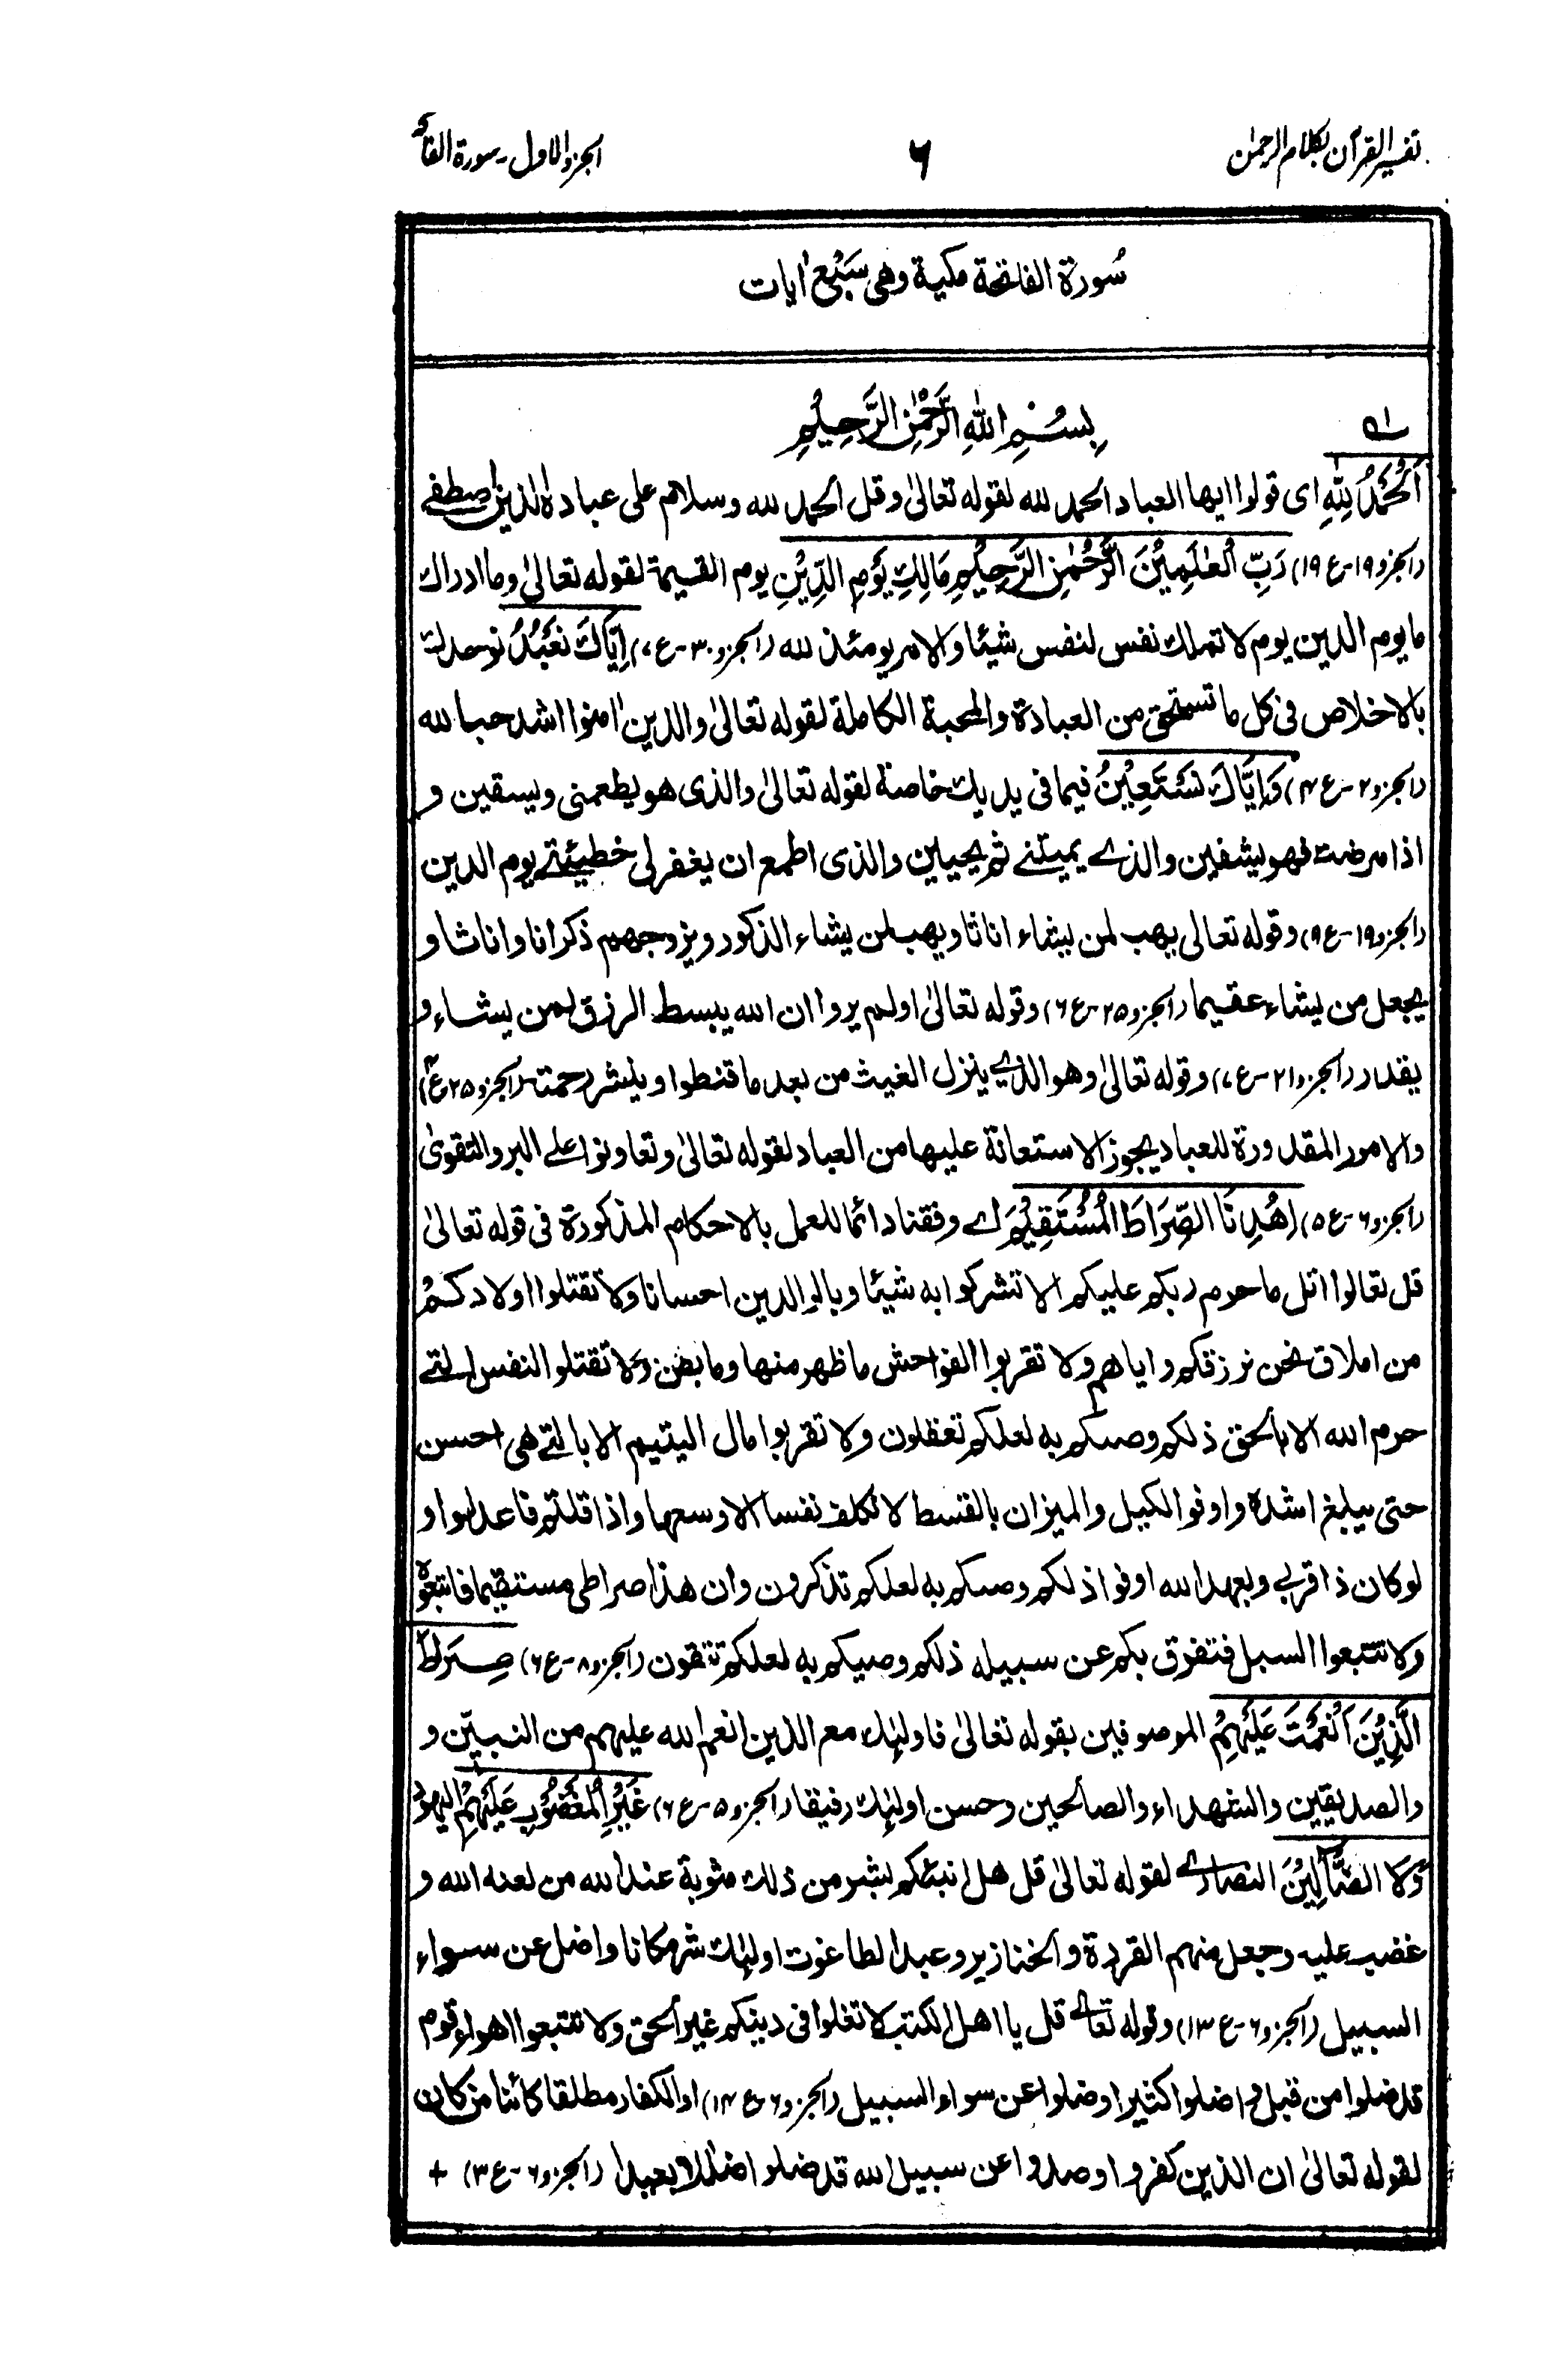 تفسير القرآن بكلام الرحمٰن
٦
الجزء الاول - سورة الفاتحة
سُورة الفاتحة مكية وهى سَبْعُ اٰيات
بِسْمِ اللّٰهِ الرَّحْمٰنِ الرَّحِيْمِ
اَلْحَمْدُ لِلّٰهِ اى قولوا ايها العباد الحمد لله لقوله تعالىٰ وقل الحمد لله وسلام على عباده الذين اصطفے
(الجزو ١٩-ع ١٩) رَبِّ الْعٰلَمِيْنَ الرَّحْمٰنِ الرَّحِيْمِ مَالِكِ يَوْمِ الدِّيْنِ يوم القيمة لقوله تعالىٰ وما ادراك
ما يوم الدين يوم لا تملك نفس لنفس شيئا والامر يومئذ لله (الجزو ٣٠-ع ٧) اِيَّاكَ نَعْبُدُ نوحدك
بالاخلاص فى كل ما تستحق من العبادة والمحبة الكاملة لقوله تعالىٰ والذين اٰمنوا اشد حبا لله
(الجزو ٢-ع ٤) وَاِيَّاكَ نَسْتَعِيْنُ فيما فى يديك خاصة لقوله تعالىٰ والذى هو يطعمنى ويسقين و
اذا مرضت فهو يشفين والذے يميتنے ثم يحيين والذى اطمع ان يغفر لى خطيئتے يوم الدين
(الجزو ١٩-ع ٩) وقوله تعالى يهب لمن يشاء اناثا ويهب لمن يشاء الذكور ويزوجهم ذكرانا واناثا و
يجعل من يشاء عقيما (الجزو ٢٥-ع ٦) وقوله تعالىٰ اولم يروا ان الله يبسط الرزق لمن يشاء و
يقدر (الجزو ٢١-ع ٧) وقوله تعالىٰ وهو الذے ينزل الغيث من بعد ما قنطوا وينشر رحمته (الجزو ٢٥ ع ٤)
والامور المقدورة للعباد يجوز الاستعانة عليها من العباد لقوله تعالىٰ وتعاونوا علے البر والتقوىٰ
(الجزو ٦-ع ٥) اِهْدِنَا الصِّرَاطَ الْمُسْتَقِيْمَ اے وفقنا دائما للعمل بالاحكام المذكورة فى قوله تعالىٰ
قل تعالوا اتل ما حرم ربكم عليكم الا تشركوا به شيئا وبالوالدين احسانا ولا تقتلوا اولادكم
من املاق نحن نرزقكم واياهم ولا تقربوا الفواحش ما ظهر منها وما بطن ولا تقتلوا النفس التے
حرم الله الا بالحق ذلكم وصىكم به لعلكم تعقلون ولا تقربوا مال اليتيم الا بالتے هى احسن
حتى يبلغ اشده واوفوا الكيل والميزان بالقسط لا نكلف نفسا الا وسعها واذا قلتم فاعدلوا و
لو كان ذا قربے وبعهد الله اوفوا ذلكم وصىكم به لعلكم تذكرون وان هذا صراطى مستقيما فاتبعوه
ولا تتبعوا السبل فتفرق بكم عن سبيله ذلكم وصيكم به لعلكم تتقون (الجزو ٨-ع ٦) صِرَاطَ
الَّذِيْنَ اَنْعَمْتَ عَلَيْهِمْ الموصوفين بقوله تعالىٰ فاولٰئك مع الذين انعم الله عليهم من النبيّن و
والصديقين والشهداء والصالحين وحسن اولٰئك رفيقا (الجزو ٥-ع ٦) غَيْرِ الْمَغْضُوْبِ عَلَيْهِمْ اليهود
وَلَا الضَّآلِّيْنَ النصارے لقوله تعالىٰ قل هل انبئكم بشر من ذلك مثوبة عند الله من لعنه الله و
غضب عليه وجعل منهم القردة والخنازير وعبد الطاغوت اولٰئك شر مكانا واضل عن سواء
السبيل (الجزو ٦-ع ١٣) وقوله تعالے قل يا اهل الكتٰب لا تغلوا فى دينكم غير الحق ولا تتبعوا اهواء قوم
قد ضلوا من قبل و اضلوا كثيرا وضلوا عن سواء السبيل (الجزو ٦-ع ١٤) او الكفار مطلقا كائنا من كان
لقوله تعالىٰ ان الذين كفروا وصدوا عن سبيل الله قد ضلوا ضلٰلا بعيدا (الجزو ٦-ع ٣) +